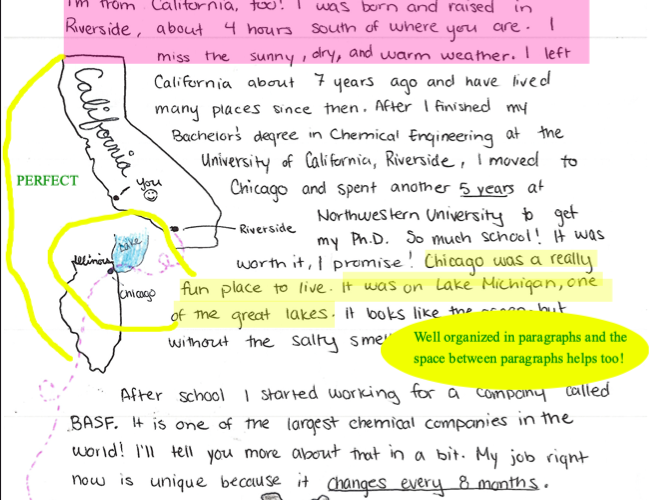 I'm from California, too! I was born and raised in
Riverside, about 4 hours south of where you are. I
miss the sunny, dry, and warm weather. I left
California about 7 years ago and have lived
many places since then. After I finished my
Bachelor's degree in Chemical Engineering at the
University of California, Riverside, I moved to
Chicago and spent another 5 years at
Northwestern University to get
my Ph.D. So much school! It was
worth it, I promise! Chicago was a really
fun place to live. It was on Lake Michigan, one
of the great lakes. It looks like the ocean but
without the salty
After school I started working for a company called
BASF. It is one of the largest chemical companies in the
world! I'll tell you more about that in a bit. My job right
now is unique because it changes every 8 months.
California
you
PERFECT
Riverside
Lake
Illinois
Chicago
Well organized in paragraphs and the
space between paragraphs helps too!